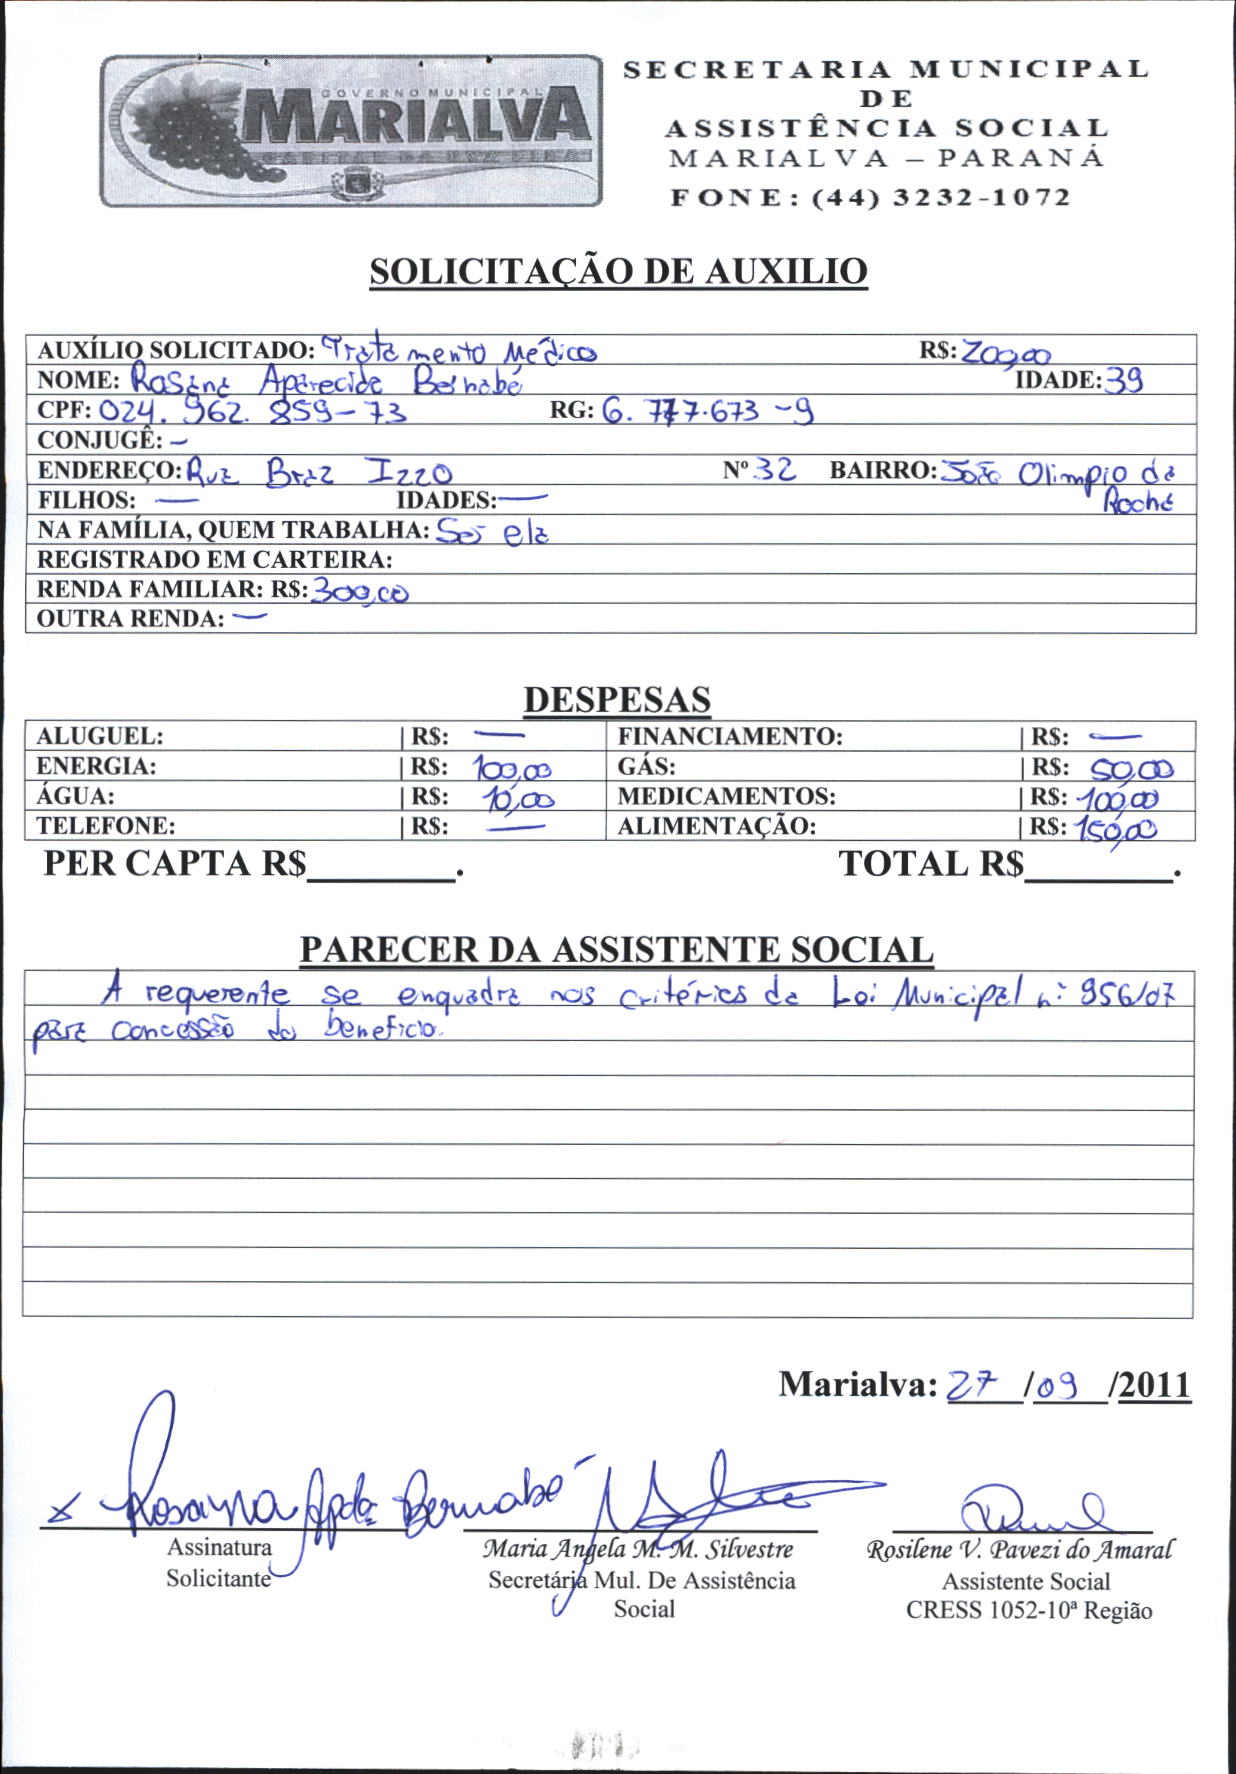 GOVERNO MUNICIPAL
MARIALVA
CAPITAL DA UVA FINA
SECRETARIA MUNICIPAL
DE
ASSISTÊNCIA SOCIAL
MARIALVA – PARANÁ
FONE: (44) 3232-1072
SOLICITAÇÃO DE AUXILIO
AUXÍLIO SOLICITADO: Tratamento Médico R$: 200,00
NOME: Rosana Aparecida Bernabé IDADE: 39
CPF: 024.962.859-73 RG: 6.777.673-9
CONJUGÊ: -
ENDEREÇO: Rua Braz Izzo Nº 32 BAIRRO: João Olimpio da
Rocha
FILHOS: — IDADES: —
NA FAMÍLIA, QUEM TRABALHA: Só ela
REGISTRADO EM CARTEIRA:
RENDA FAMILIAR: R$: 300,00
OUTRA RENDA: —
DESPESAS
ALUGUEL: | R$: — FINANCIAMENTO: | R$: —
ENERGIA: | R$: 100,00 GÁS: | R$: 50,00
ÁGUA: | R$: 10,00 MEDICAMENTOS: | R$: 100,00
TELEFONE: | R$: — ALIMENTAÇÃO: | R$: 150,00
PER CAPTA R$________. TOTAL R$________.
PARECER DA ASSISTENTE SOCIAL
A requerente se enquadra nos critérios da Lei Municipal nº 956/07
para concessão do benefício.
Marialva: 27 /09 /2011
x Rosana Apda Bernabé
Assinatura
Solicitante
Maria Angela M. M. Silvestre
Secretária Mul. De Assistência
Social
Rosilene V. Pavezi do Amaral
Assistente Social
CRESS 1052-10ª Região